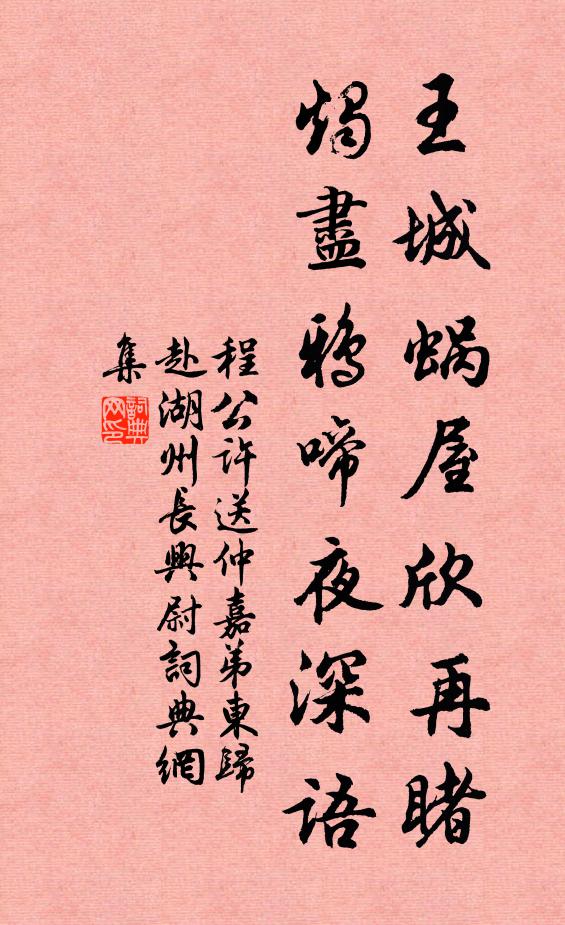 王城蝸屋欣再睹
燭盡鴉啼夜深語
程公許送仲嘉弟東歸
赴湖州長興尉詞典網
集
詞典
网印